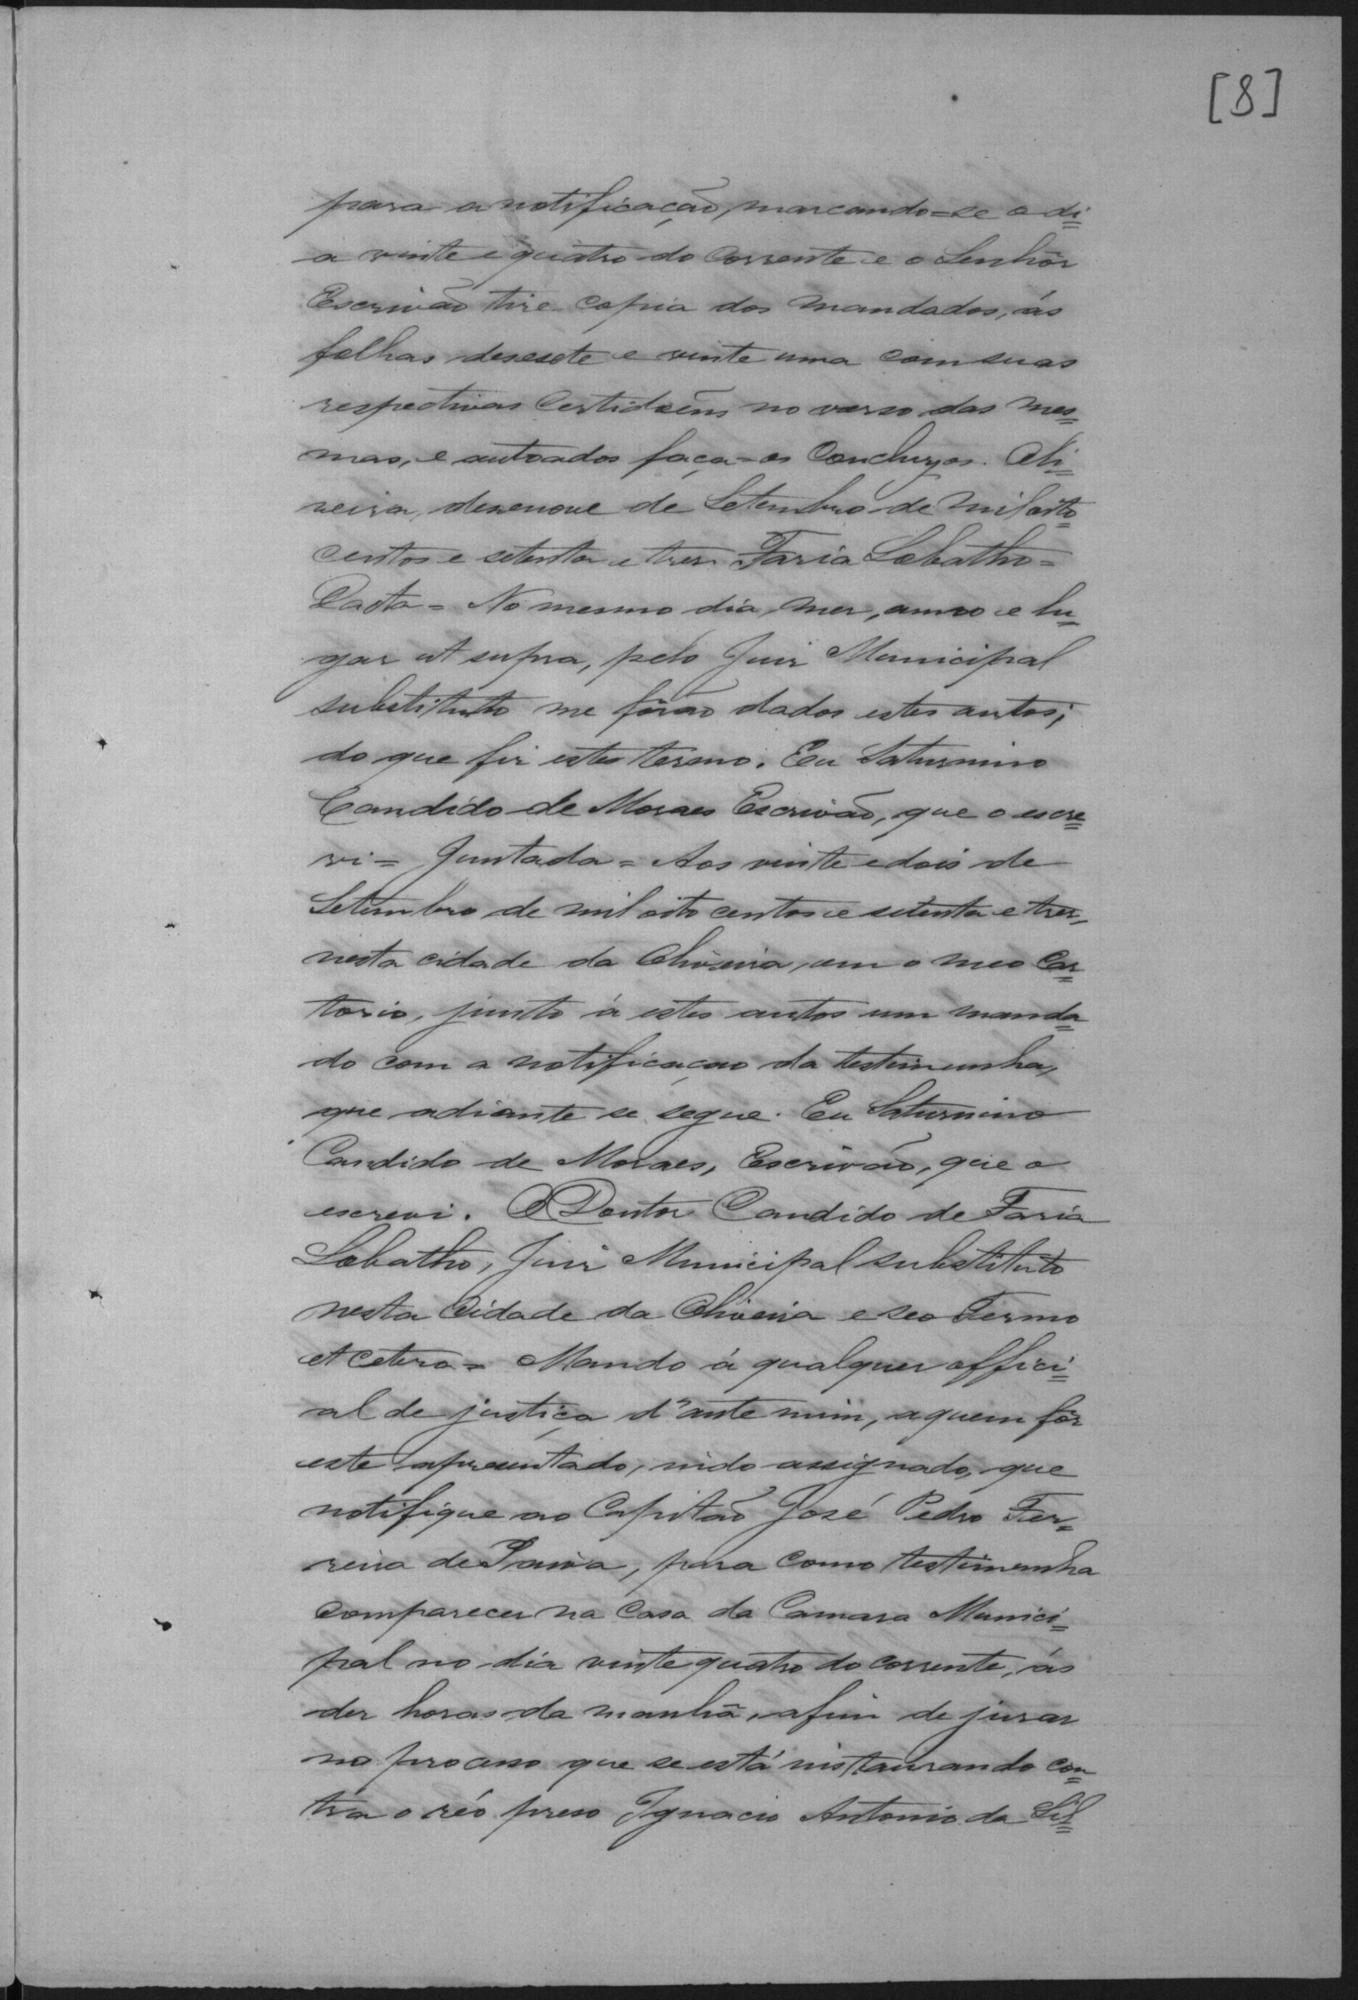 [8]
para a notificação, marcando=se o di=
a vinte e quatro do Corrente e o Senhôr
Escrivão tire copia dos mandados, ás
folhas desesete e vinte uma com suas
respectivas Certidoẽns no verso das mes=
mas, e autoados faça-os Concluzos. Oli=
veira, desenove de Setembro de mil oito=
centos e setenta e tres. Faria Lobatho=
Dacta= No mesmo dia, mez, anno e lu=
gar ut supra, pelo Juiz Municipal
substituto me fôrão dados estes autos;
do que fiz este termo. Eu Saturnino
Candido de Moraes Escrivão, que o escre=
vi= Juntada= Aos vinte e dois de
Setembro de mil oito centos e setenta e tres,
nesta cidade da Oliveira, em o meo Car=
torio, junto á estes autos um manda=
do com a notificaçao da testimunha,
que adiante se segue. Eu Saturnino
Candido de Moraes, Escrivão, que o
escrevi. O Doutor Candido de Faria
Lobatho, Juiz Municipal substituto
nesta Cidade da Oliveira e seo Termo
et Cetera= Mando á qualquer offici=
al de justiça d'ante mim, a quem fôr
este apresentado, indo assignado, que
notifique ao Capitão José Pedro Fer=
reira de Paiva, para como testimunha
comparecer na Casa da Camara Munici=
pal no dia vinte quatro do corrente, ás
dez horas da manhã, afim de jurar
no processo que se está instaurando con=
tra o réo preso Ignacio Antonio da Sil=